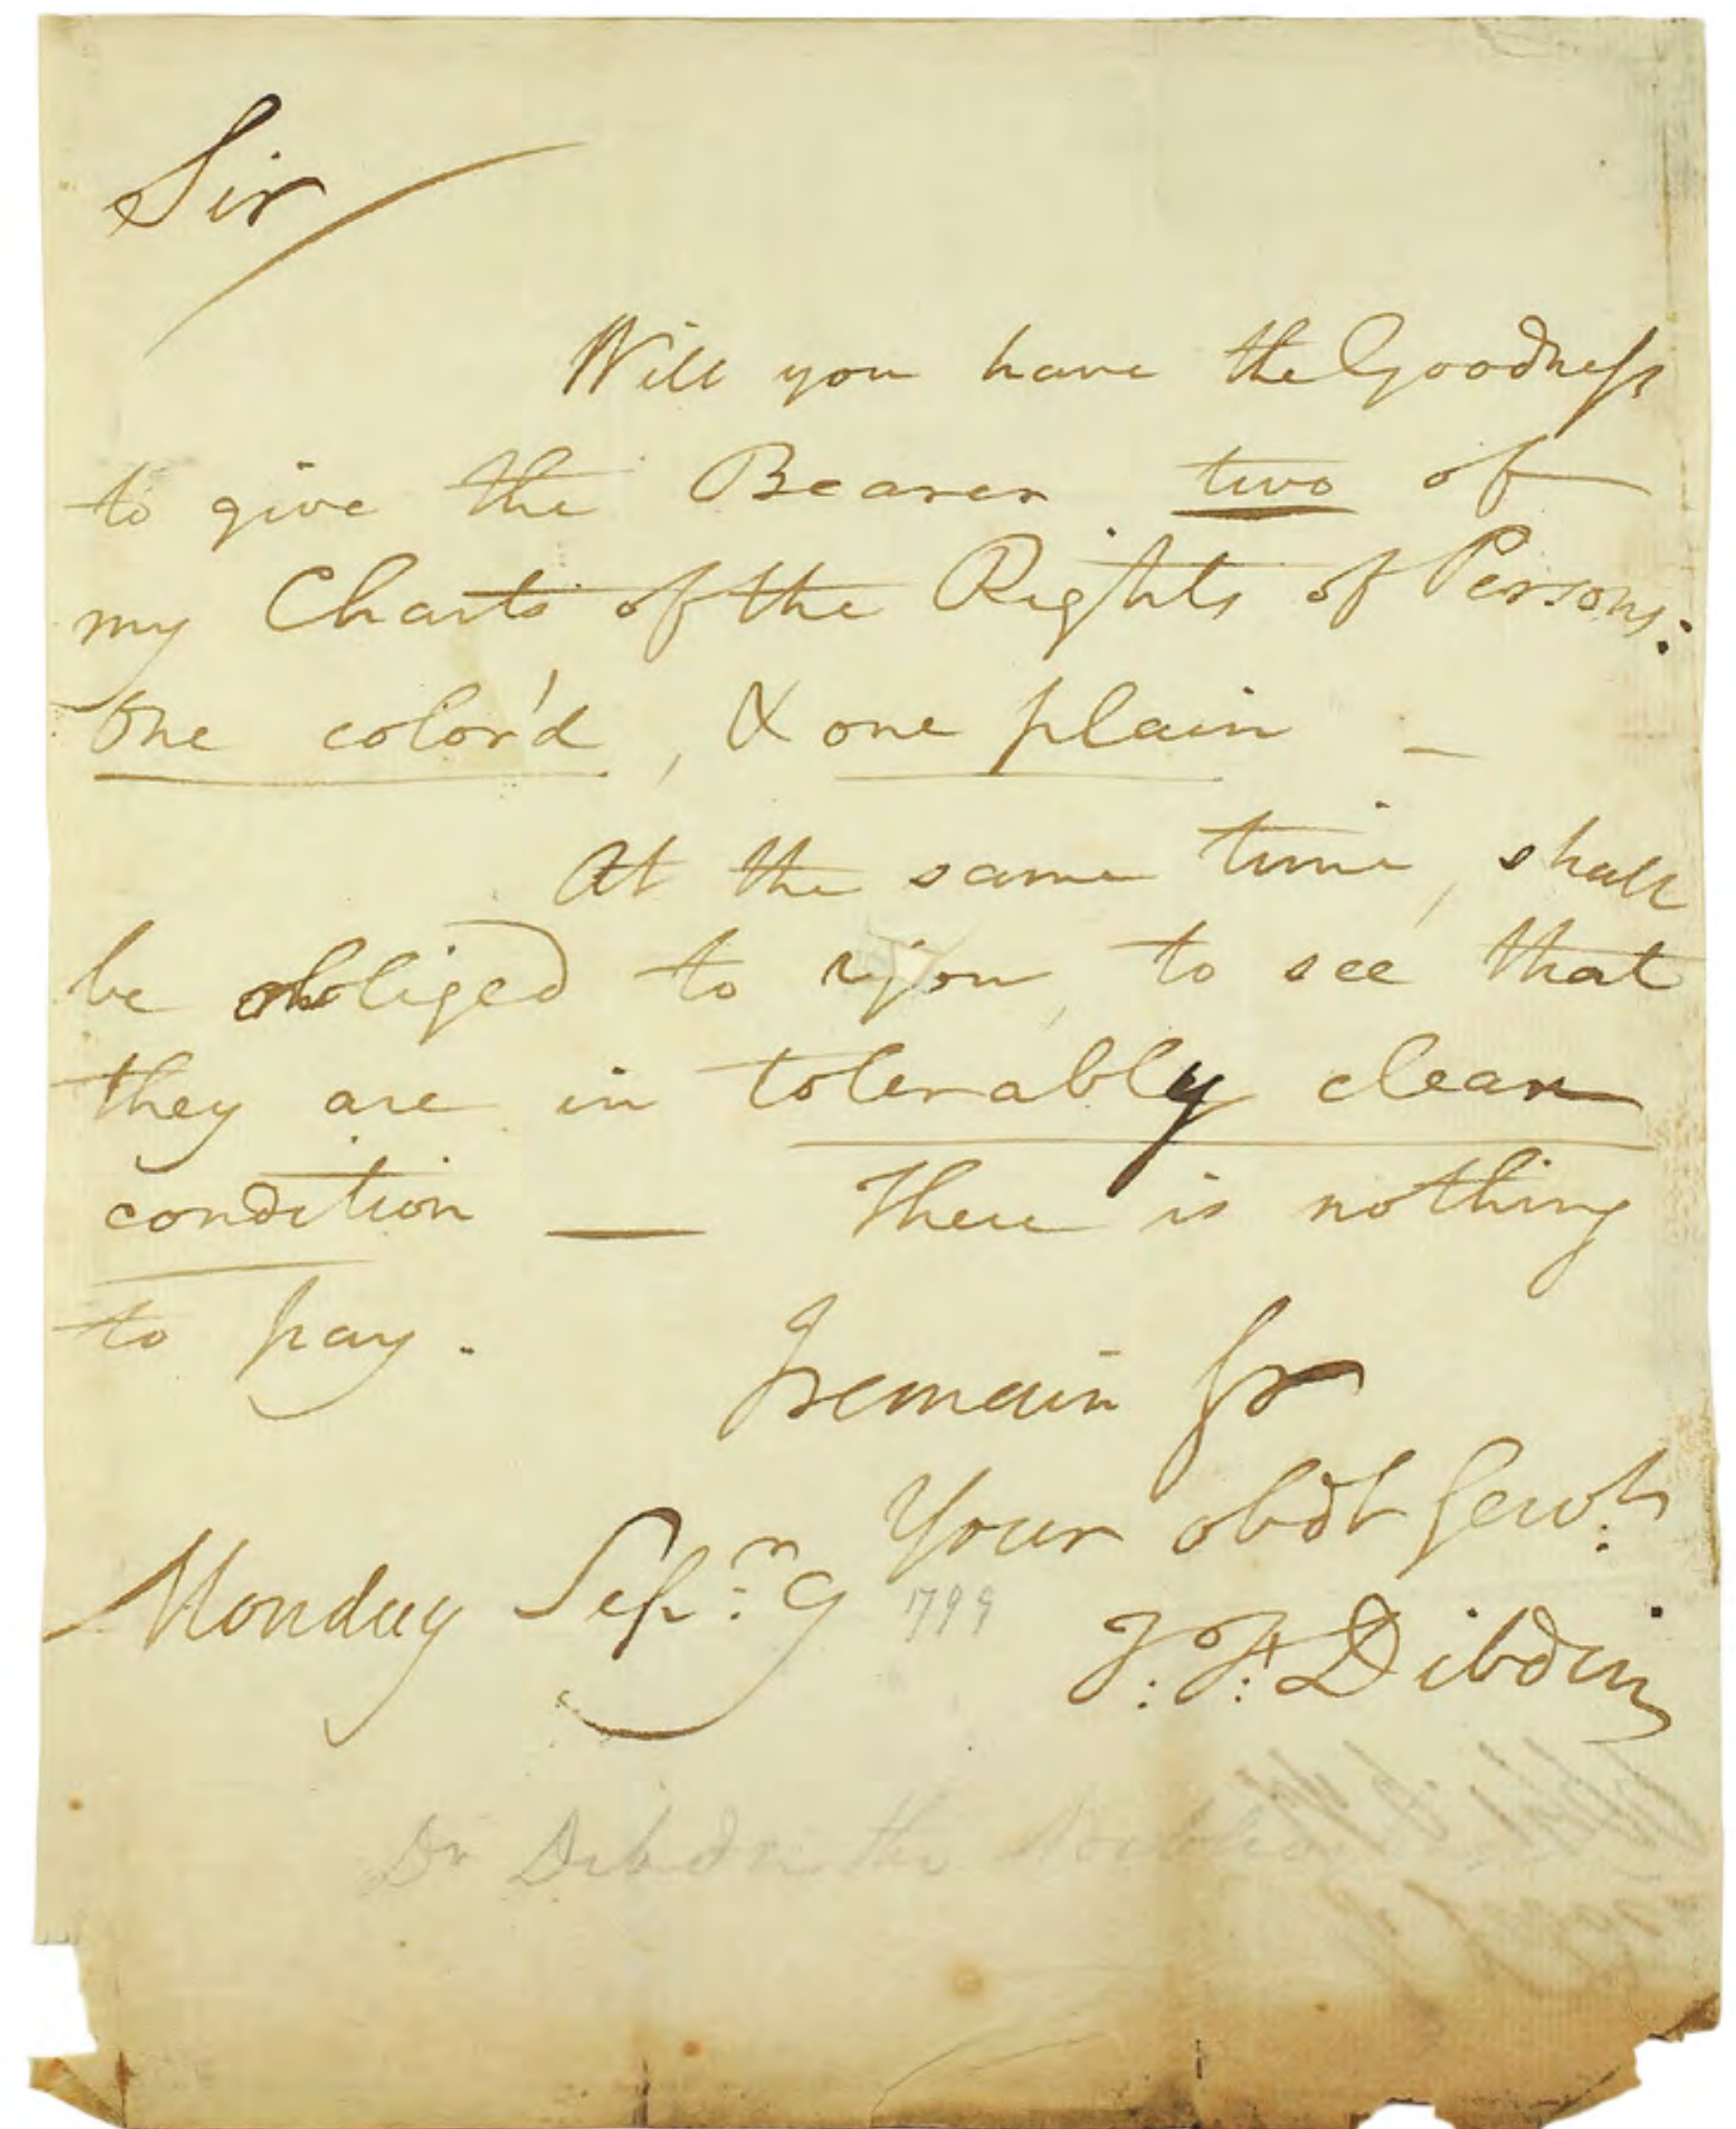 Sir
Will you have the Goodness
to give the Bearer two of
my Charts of the Rights of Persons:
One color'd, & one plain –
At the same time, shall
be obliged to you, to see that
they are in tolerably clean
condition — There is nothing
to pay.
I remain Sr
Your obdt Servt.
Monday Sepr. 9 1799
T: F: Dibdin
Dr Dibdin the